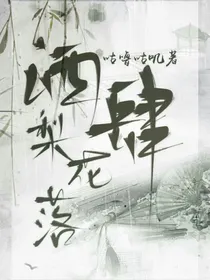 咕噜咕叽著
酒肆
梨花落